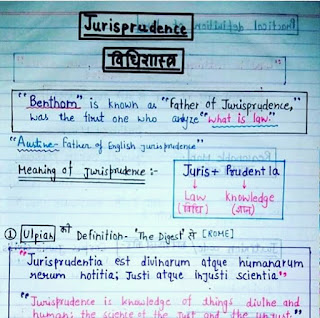 Jurisprudence
विधिशास्त्र
"Benthom" is known as "Father of Jurisprudence,"
was the first one who anlyze "what is law"
"Austine- Father of English jurisprudence"
Meaning of Jurisprudence :- Juris + Prudentia
Law knowledge
(विधि) (ज्ञान)
① Ulpian की Definition- 'The Digest' से [ROME]
"Jurisprudentia est divinarum atque humanarum
rerum notitia; Justi atque injusti scientia"
"Jurisprudence is knowledge of things divine and
human; the science of the just and the unjust."